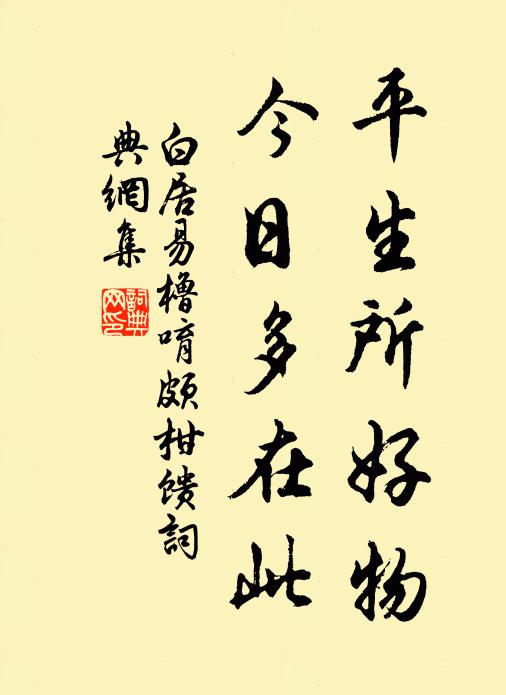 平生所好物
今日多在此
白居易櫓唷頗柑馈詞
典網集
詞典
网印